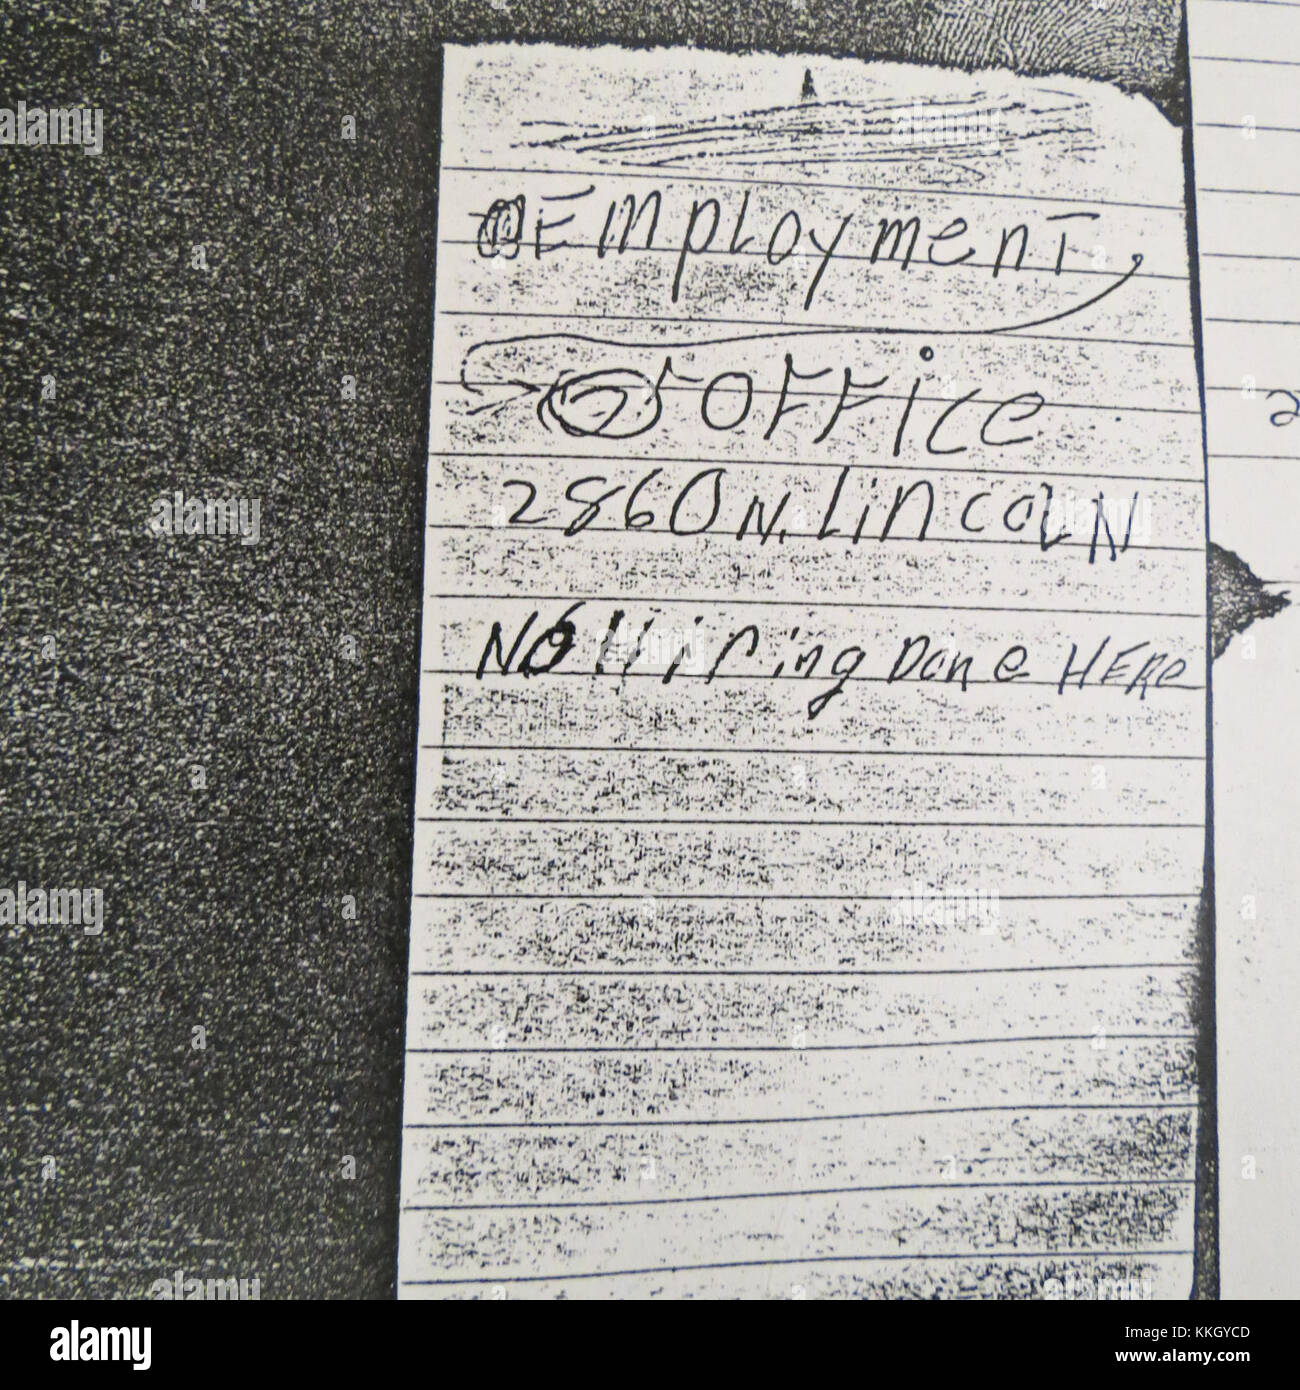 Employment,
Office
2860 N. LincoLN
No Hiring Done HERe
2
a alamy
alamy
Image ID: KKGYCD
www.alamy.com